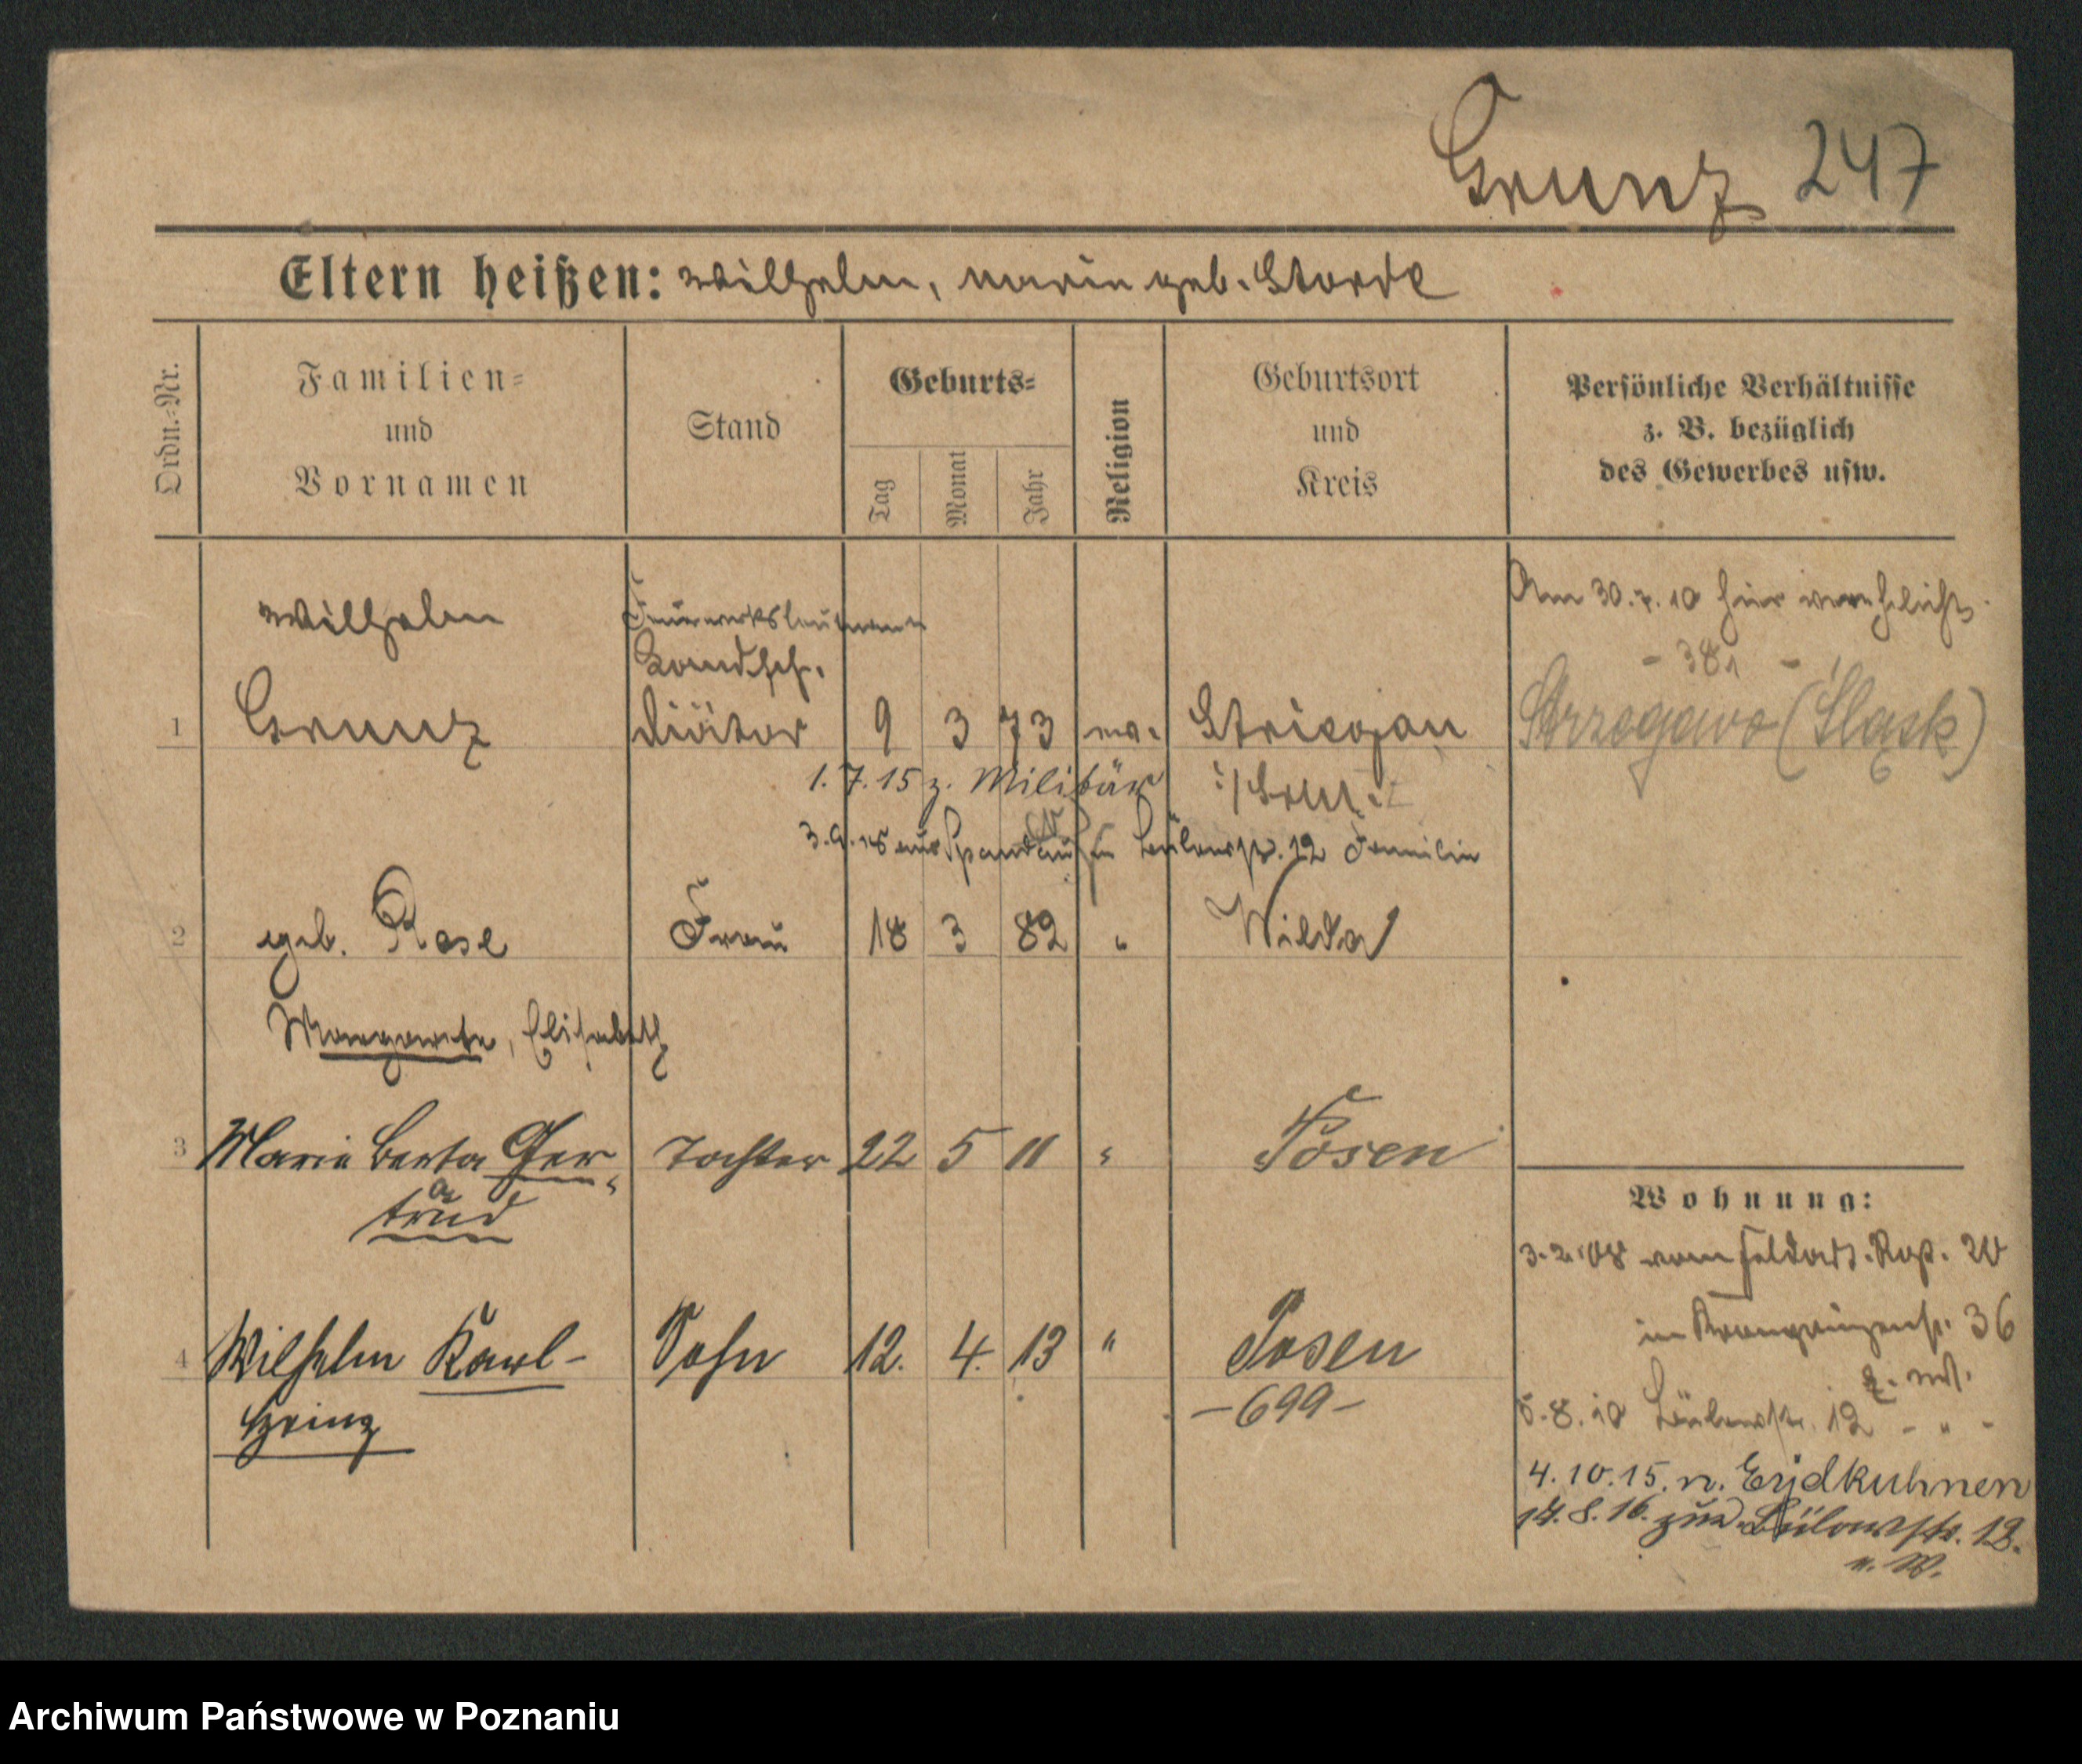 Grunz 247
Eltern heißen: Wilhelm, Marie geb. Storde
Ordn.-Nr.
Familien-
und
Vornamen
Stand
Geburts-
Tag
Monat
Jahr
Religion
Geburtsort
und
Kreis
Persönliche Verhältnisse
z. B. bezüglich
des Gewerbes usw.
Wilhelm
Feuerwerksleutnant
Landsch.
Am 30.7.10 hier verehelicht
- 381 -
1 Grunz Diätar 9 3 73 ev. Striegau Strzegowo (Śląsk)
1.7.15 z. Militär
3.9.15 aus Spandau Bülowstr. 12 Familie
2 geb. Rose Frau 18 3 82 " Wilda
Margarete, Elisabeth
3 Marie Berta Ger- Tochter 22 5 11 " Posen
trud
Wohnung:
3.2.08 vom Feldart. Rgt. 20
in Kronprinzenstr. 36
4 Wilhelm Karl- Sohn 12. 4. 13 " Posen
Heinz
-699-
5.8.10 Bülowstr. 12 - " -
4.10.15. n. Eydkuhnen
14.8.16. zur. Bülowstr. 12.